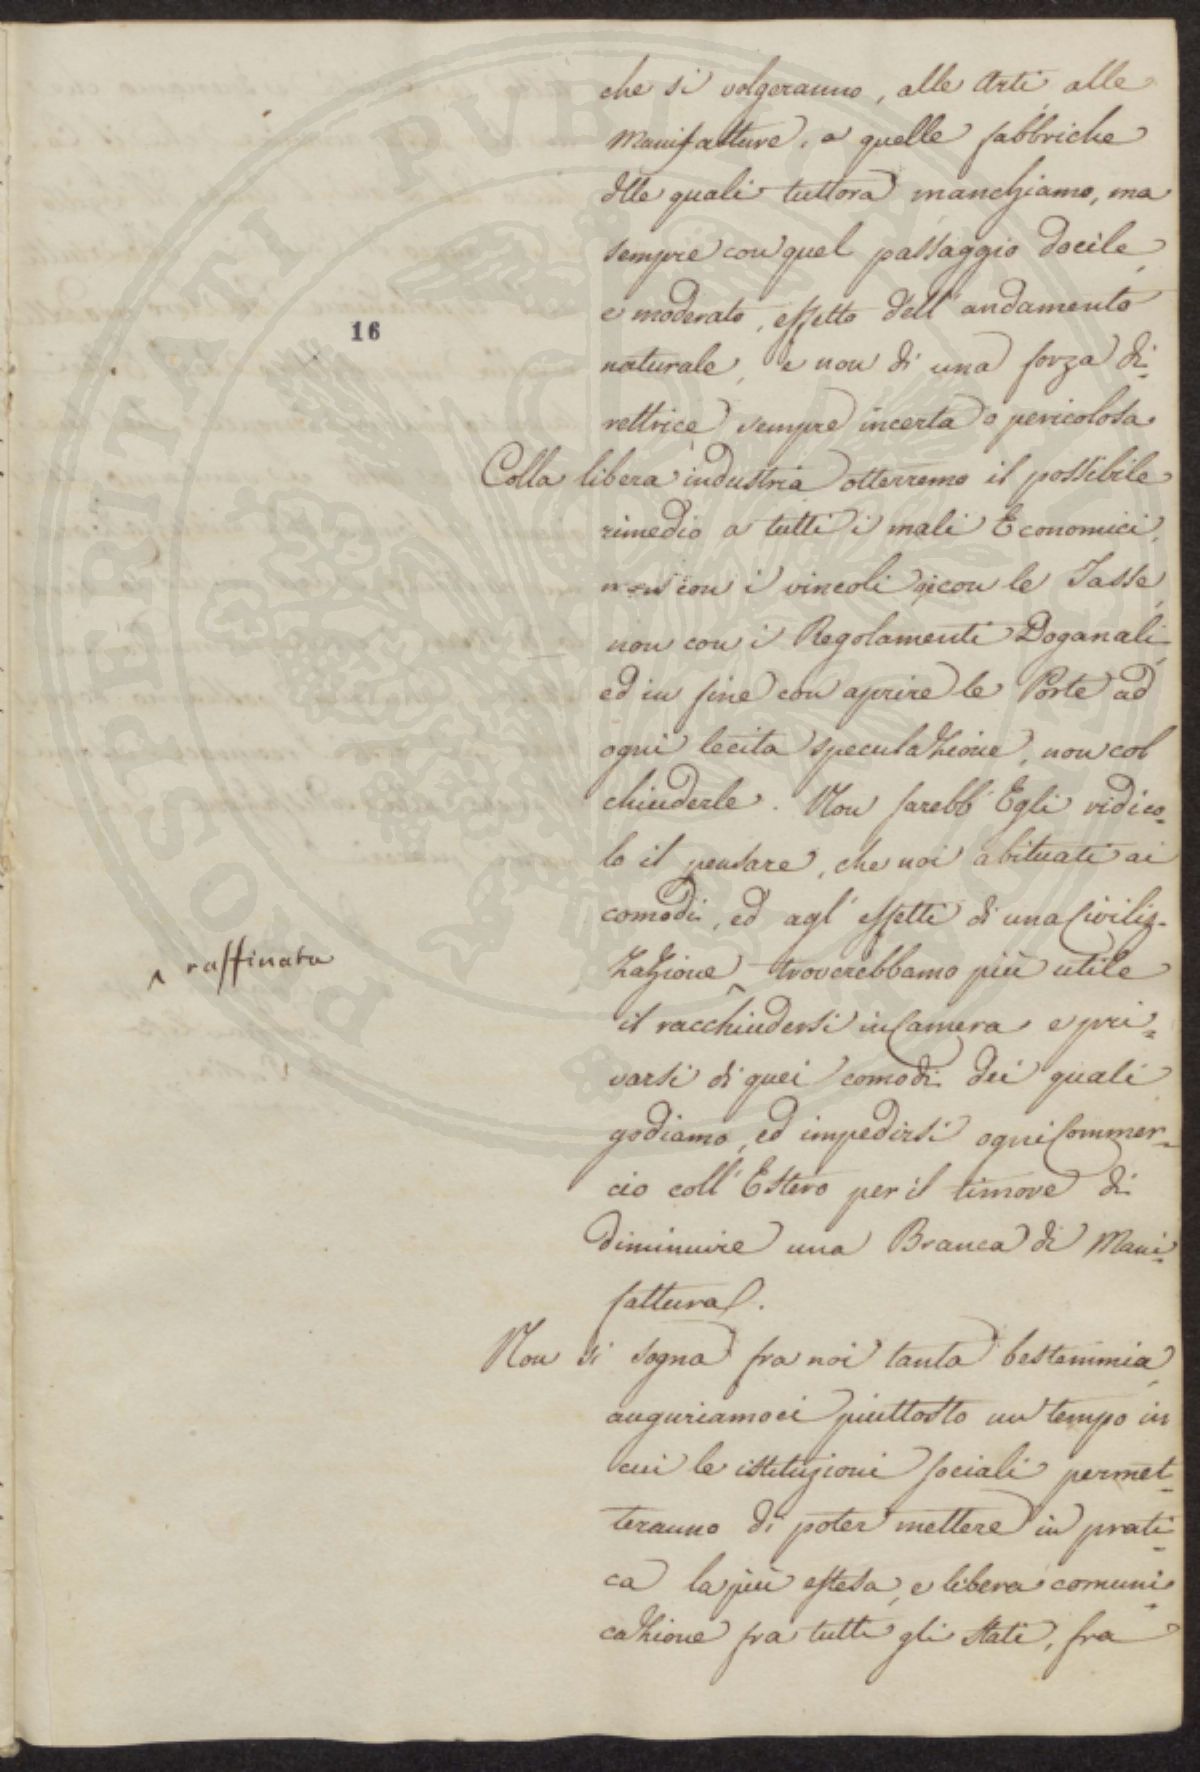 che si volgeranno, alle Arti, alle
Manifatture, a quelle fabbriche
delle quali tuttora manchiamo, ma
sempre con quel passaggio docile,
e moderato, effetto dell' andamento
16
naturale, e non di una forza di=
rettrice sempre incerta o pericolosa
Colla libera industria otterremo il possibile
rimedio a tutti i mali Economici,
non con i vincoli, con le Tasse,
non con i Regolamenti Doganali,
ed in fine con aprire le Porte ad
ogni lecita speculazione, non col
chiuderle. Non sarebb' Egli ridico=
lo il pensare, che noi abituati ai
comodi, ed agl' effetti di una Civiliz=
^ raffinata
zazione ^ troverebbamo più utile
il racchiudersi in Camera e pri=
varsi di quei comodi dei quali
godiamo, ed impedirsi ogni Commer=
cio coll' Estero per il timore di
diminuire una Branca di Mani=
fattura.
Non si sogna fra noi tanta bestemmia,
auguriamoci piuttosto un tempo in
cui le istituzioni sociali permet=
teranno di poter mettere in prati=
ca la più estesa, e libera comuni=
cazione fra tutti gli Stati, fra
PROSPERITATI PUBLICAE